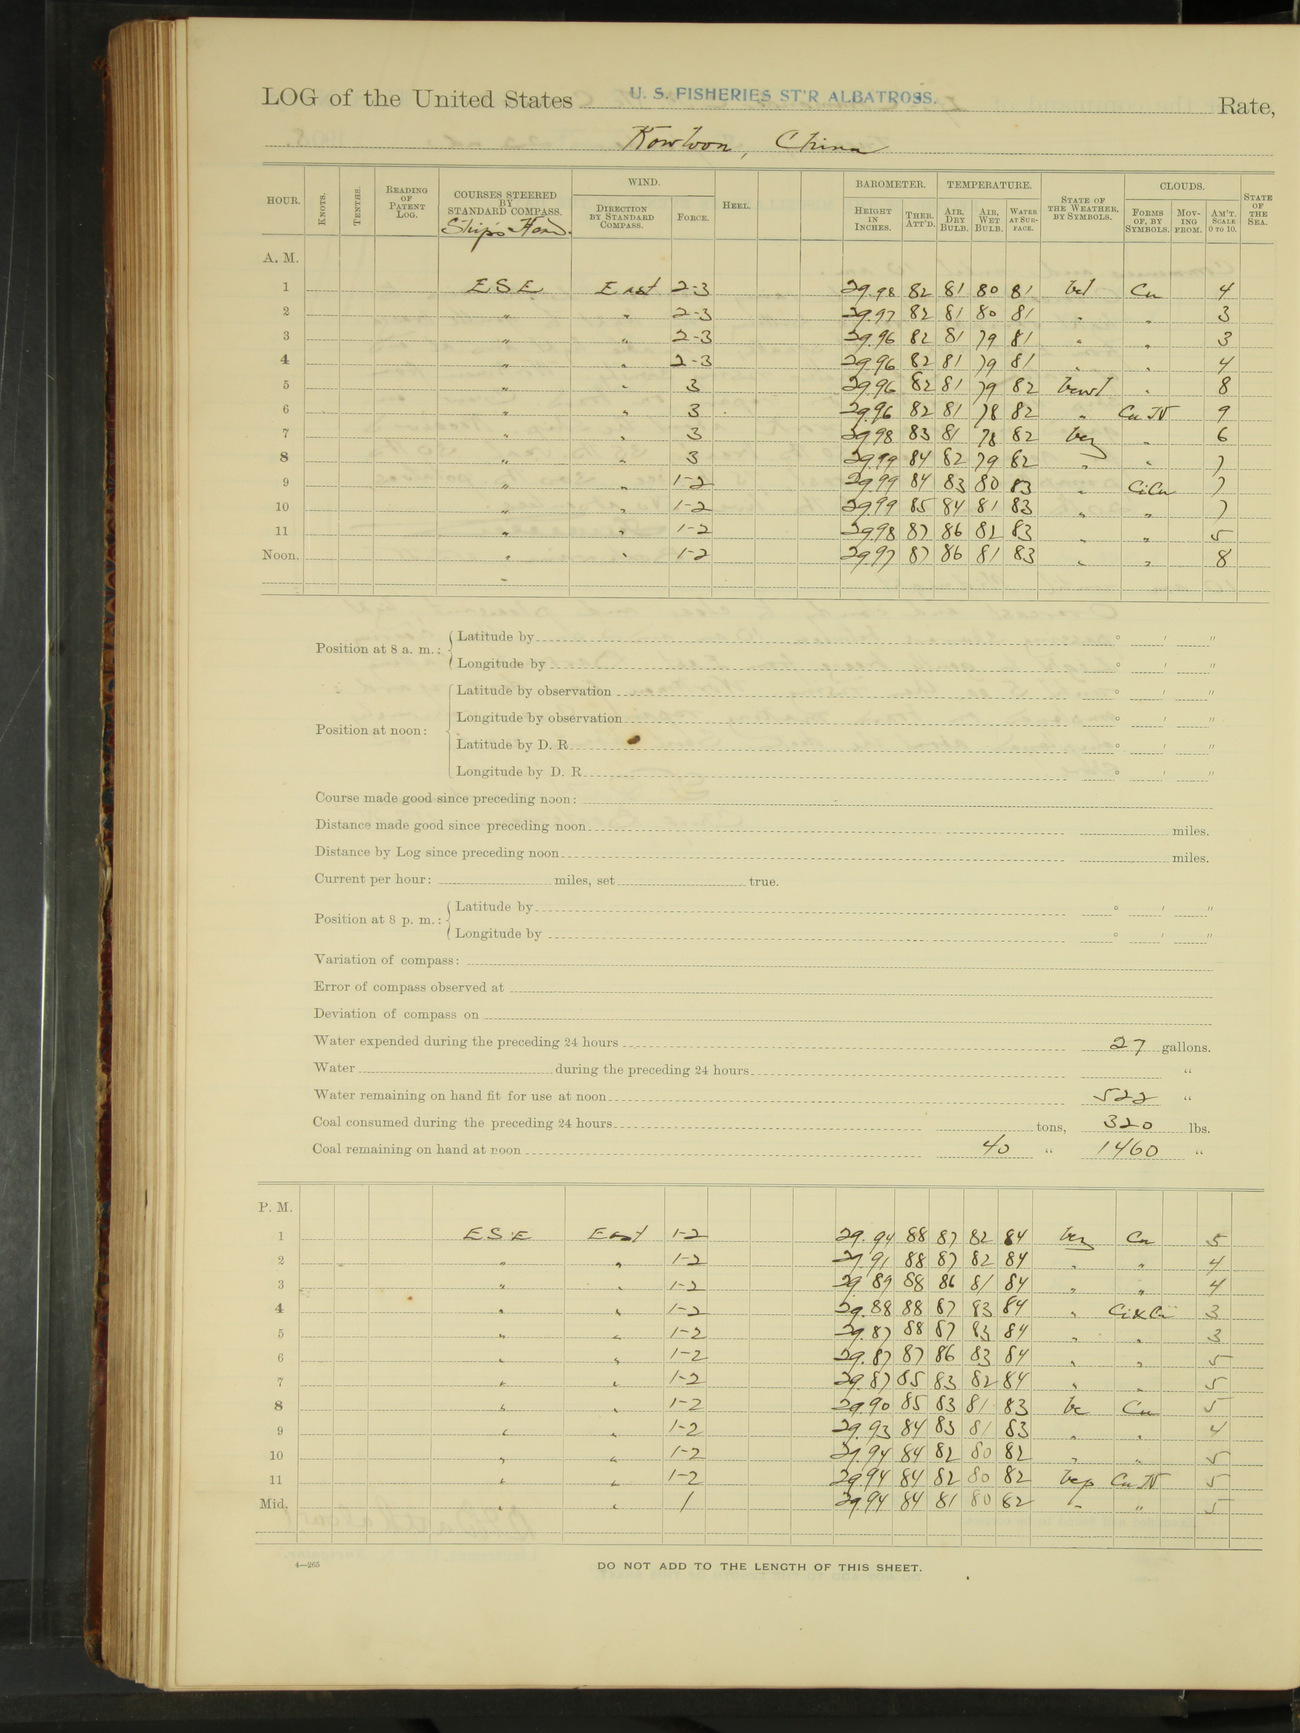 LOG of the United States U. S. FISHERIES ST'R ALBATROSS. Rate,
Kowloon, China
HOUR. KNOTS. TENTHS. READING OF PATENT LOG. COURSES STEERED BY STANDARD COMPASS. Ships Head. WIND. DIRECTION BY STANDARD COMPASS. FORCE. HEEL. BAROMETER. HEIGHT IN INCHES. THER. ATT'D. TEMPERATURE. AIR, DRY BULB. AIR, WET BULB. WATER AT SURFACE. STATE OF THE WEATHER, BY SYMBOLS. CLOUDS. FORMS OF, BY SYMBOLS. MOVING FROM. AM'T. SCALE 0 TO 10. STATE OF THE SEA.
A. M.
1 ESE East 2-3 29.98 82 81 80 81 Cu 4
2 " " 2-3 29.97 82 81 80 81 " " 3
3 " " 2-3 29.96 82 81 79 81 " " 3
4 " " 2-3 29.96 82 81 79 81 " " 4
5 " " 3 29.96 82 81 79 82 " 8
6 " " 3 29.96 82 81 78 82 " Cu N 9
7 " " 3 29.98 83 81 78 82 bcz " 6
8 " " 3 29.99 84 82 79 82 " " 7
9 " " 1-2 29.99 84 83 80 83 " Ci Cu 7
10 " " 1-2 29.99 85 84 81 83 " " 7
11 " " 1-2 29.98 87 86 82 83 " " 5
Noon. " " 1-2 29.97 87 86 81 83 " " 8
Position at 8 a. m.: Latitude by ° ′ ″
Longitude by ° ′ ″
Position at noon: Latitude by observation ° ′ ″
Longitude by observation ° ′ ″
Latitude by D. R. ° ′ ″
Longitude by D. R. ° ′ ″
Course made good since preceding noon:
Distance made good since preceding noon miles.
Distance by Log since preceding noon miles.
Current per hour: miles, set true.
Position at 8 p. m.: Latitude by ° ′ ″
Longitude by ° ′ ″
Variation of compass:
Error of compass observed at
Deviation of compass on
Water expended during the preceding 24 hours 27 gallons.
Water during the preceding 24 hours "
Water remaining on hand fit for use at noon 522 "
Coal consumed during the preceding 24 hours tons, 320 lbs.
Coal remaining on hand at noon 40 " 1460 "
P. M.
1 ESE East 1-2 29.94 88 87 82 84 bcz Cu 5
2 " " 1-2 29.91 88 87 82 84 " " 4
3 " " 1-2 29 89 88 86 81 84 " " 4
4 " " 1-2 29.88 88 87 83 84 " 3
5 " " 1-2 29.87 88 87 83 84 " " 3
6 " " 1-2 29.87 87 86 83 84 " " 5
7 " " 1-2 29.87 85 83 82 84 " " 5
8 " " 1-2 29.90 85 83 81 83 bc Cu 5
9 " " 1-2 29.93 84 83 81 83 " " 4
10 " " 1-2 29.94 84 82 80 82 " " 5
11 " " 1-2 29.94 84 82 80 82 bcp Cu N 5
Mid. " " 1 29.94 84 81 80 82 " " 5
4—265
DO NOT ADD TO THE LENGTH OF THIS SHEET.